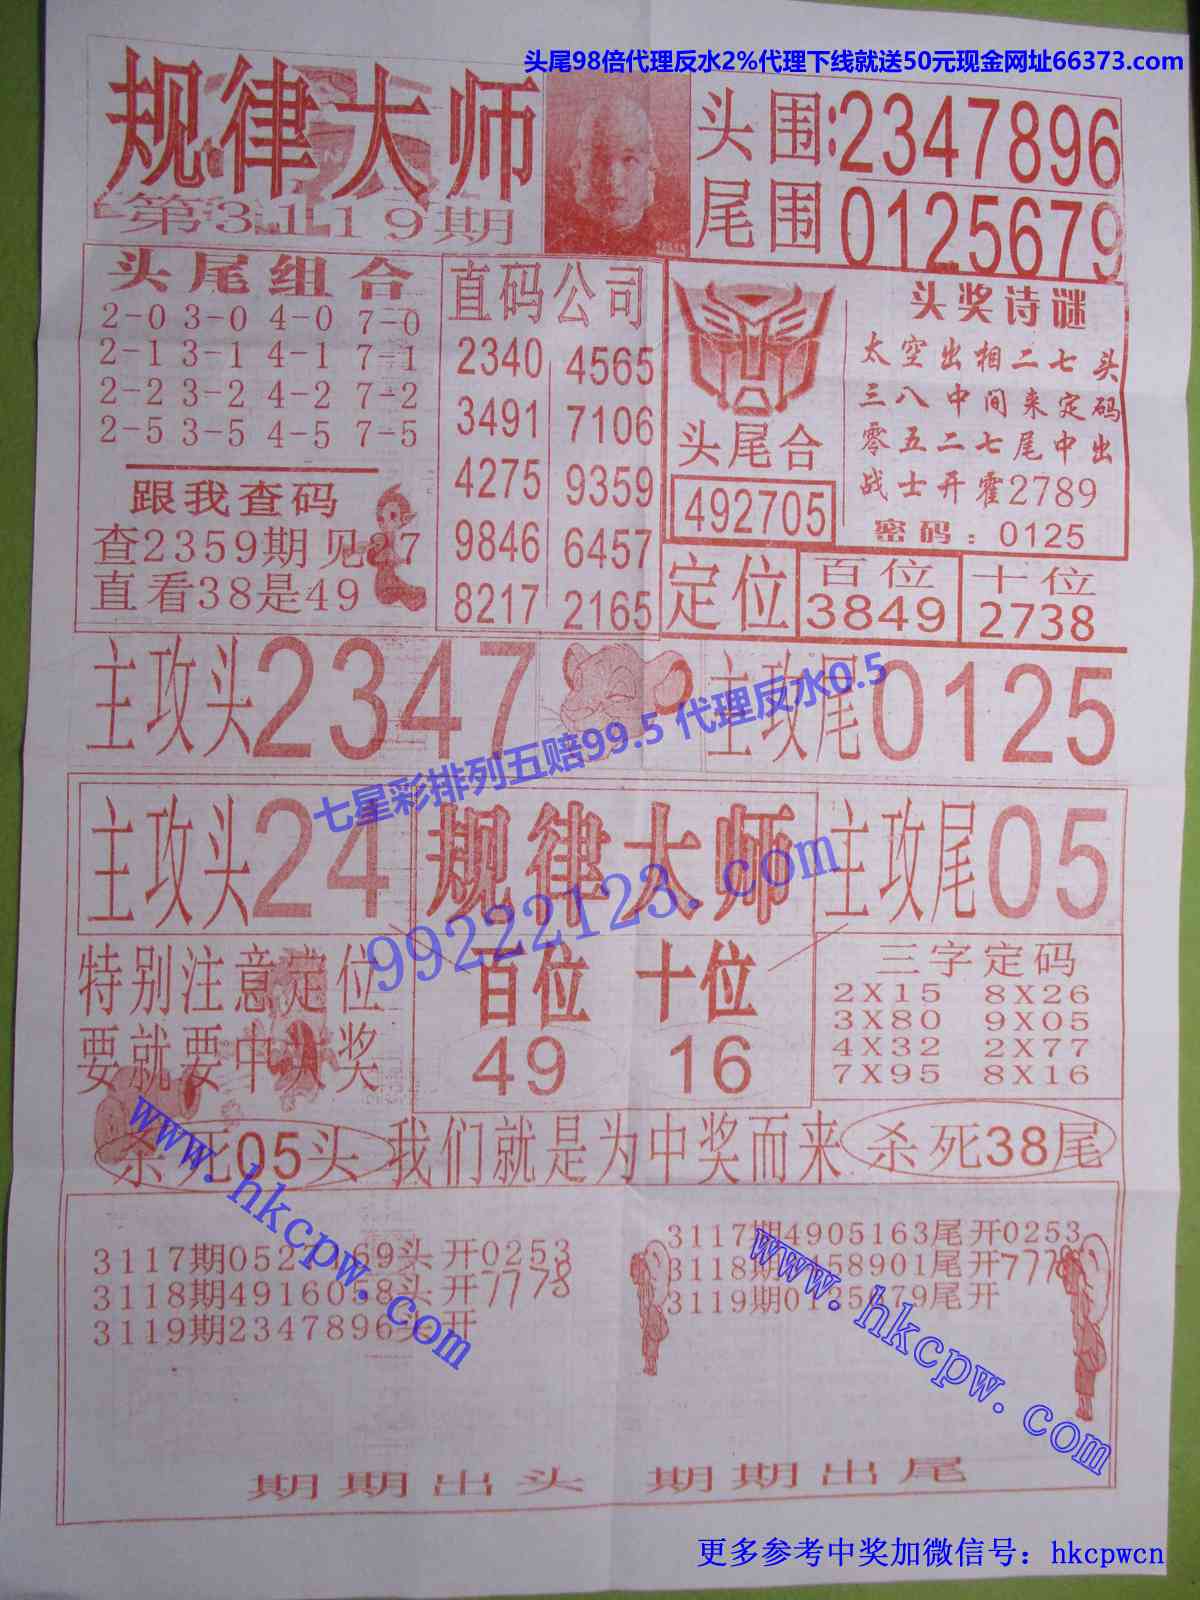 头尾98倍代理反水2%代理下线就送50元现金网址66373.com
规律大师
第3119期
头围:2347896
尾围 0125679
头尾组合
2-0 3-0 4-0 7-0
2-1 3-1 4-1 7-1
2-2 3-2 4-2 7-2
2-5 3-5 4-5 7-5
跟我查码
查2359期见27
直看38是49
直码公司
2340 4565
3491 7106
4275 9359
9846 6457
8217 2165
头尾合
492705
头奖诗谜
太空出相二七头
三八中间来定码
零五二七尾中出
战士开霍2789
密码：0125
定位 百位 3849 十位 2738
主攻头2347
主攻尾0125
七星彩排列五赔99.5 代理反水0.5
主攻头24
规律大师
主攻尾05
99222123.com
特别注意定位
要就要中大奖
百位 十位
49 16
三字定码
2X15 8X26
3X80 9X05
4X32 2X77
7X95 8X16
杀死05头
我们就是为中奖而来
杀死38尾
www.hkcpw.com
3117期052 69头开0253
3118期4916058头开7778
3119期2347896头开
3117期4905163尾开0253
3118期 458901尾开777
3119期0125679尾开
www.hkcpw.com
期期出头 期期出尾
更多参考中奖加微信号：hkcpwcn